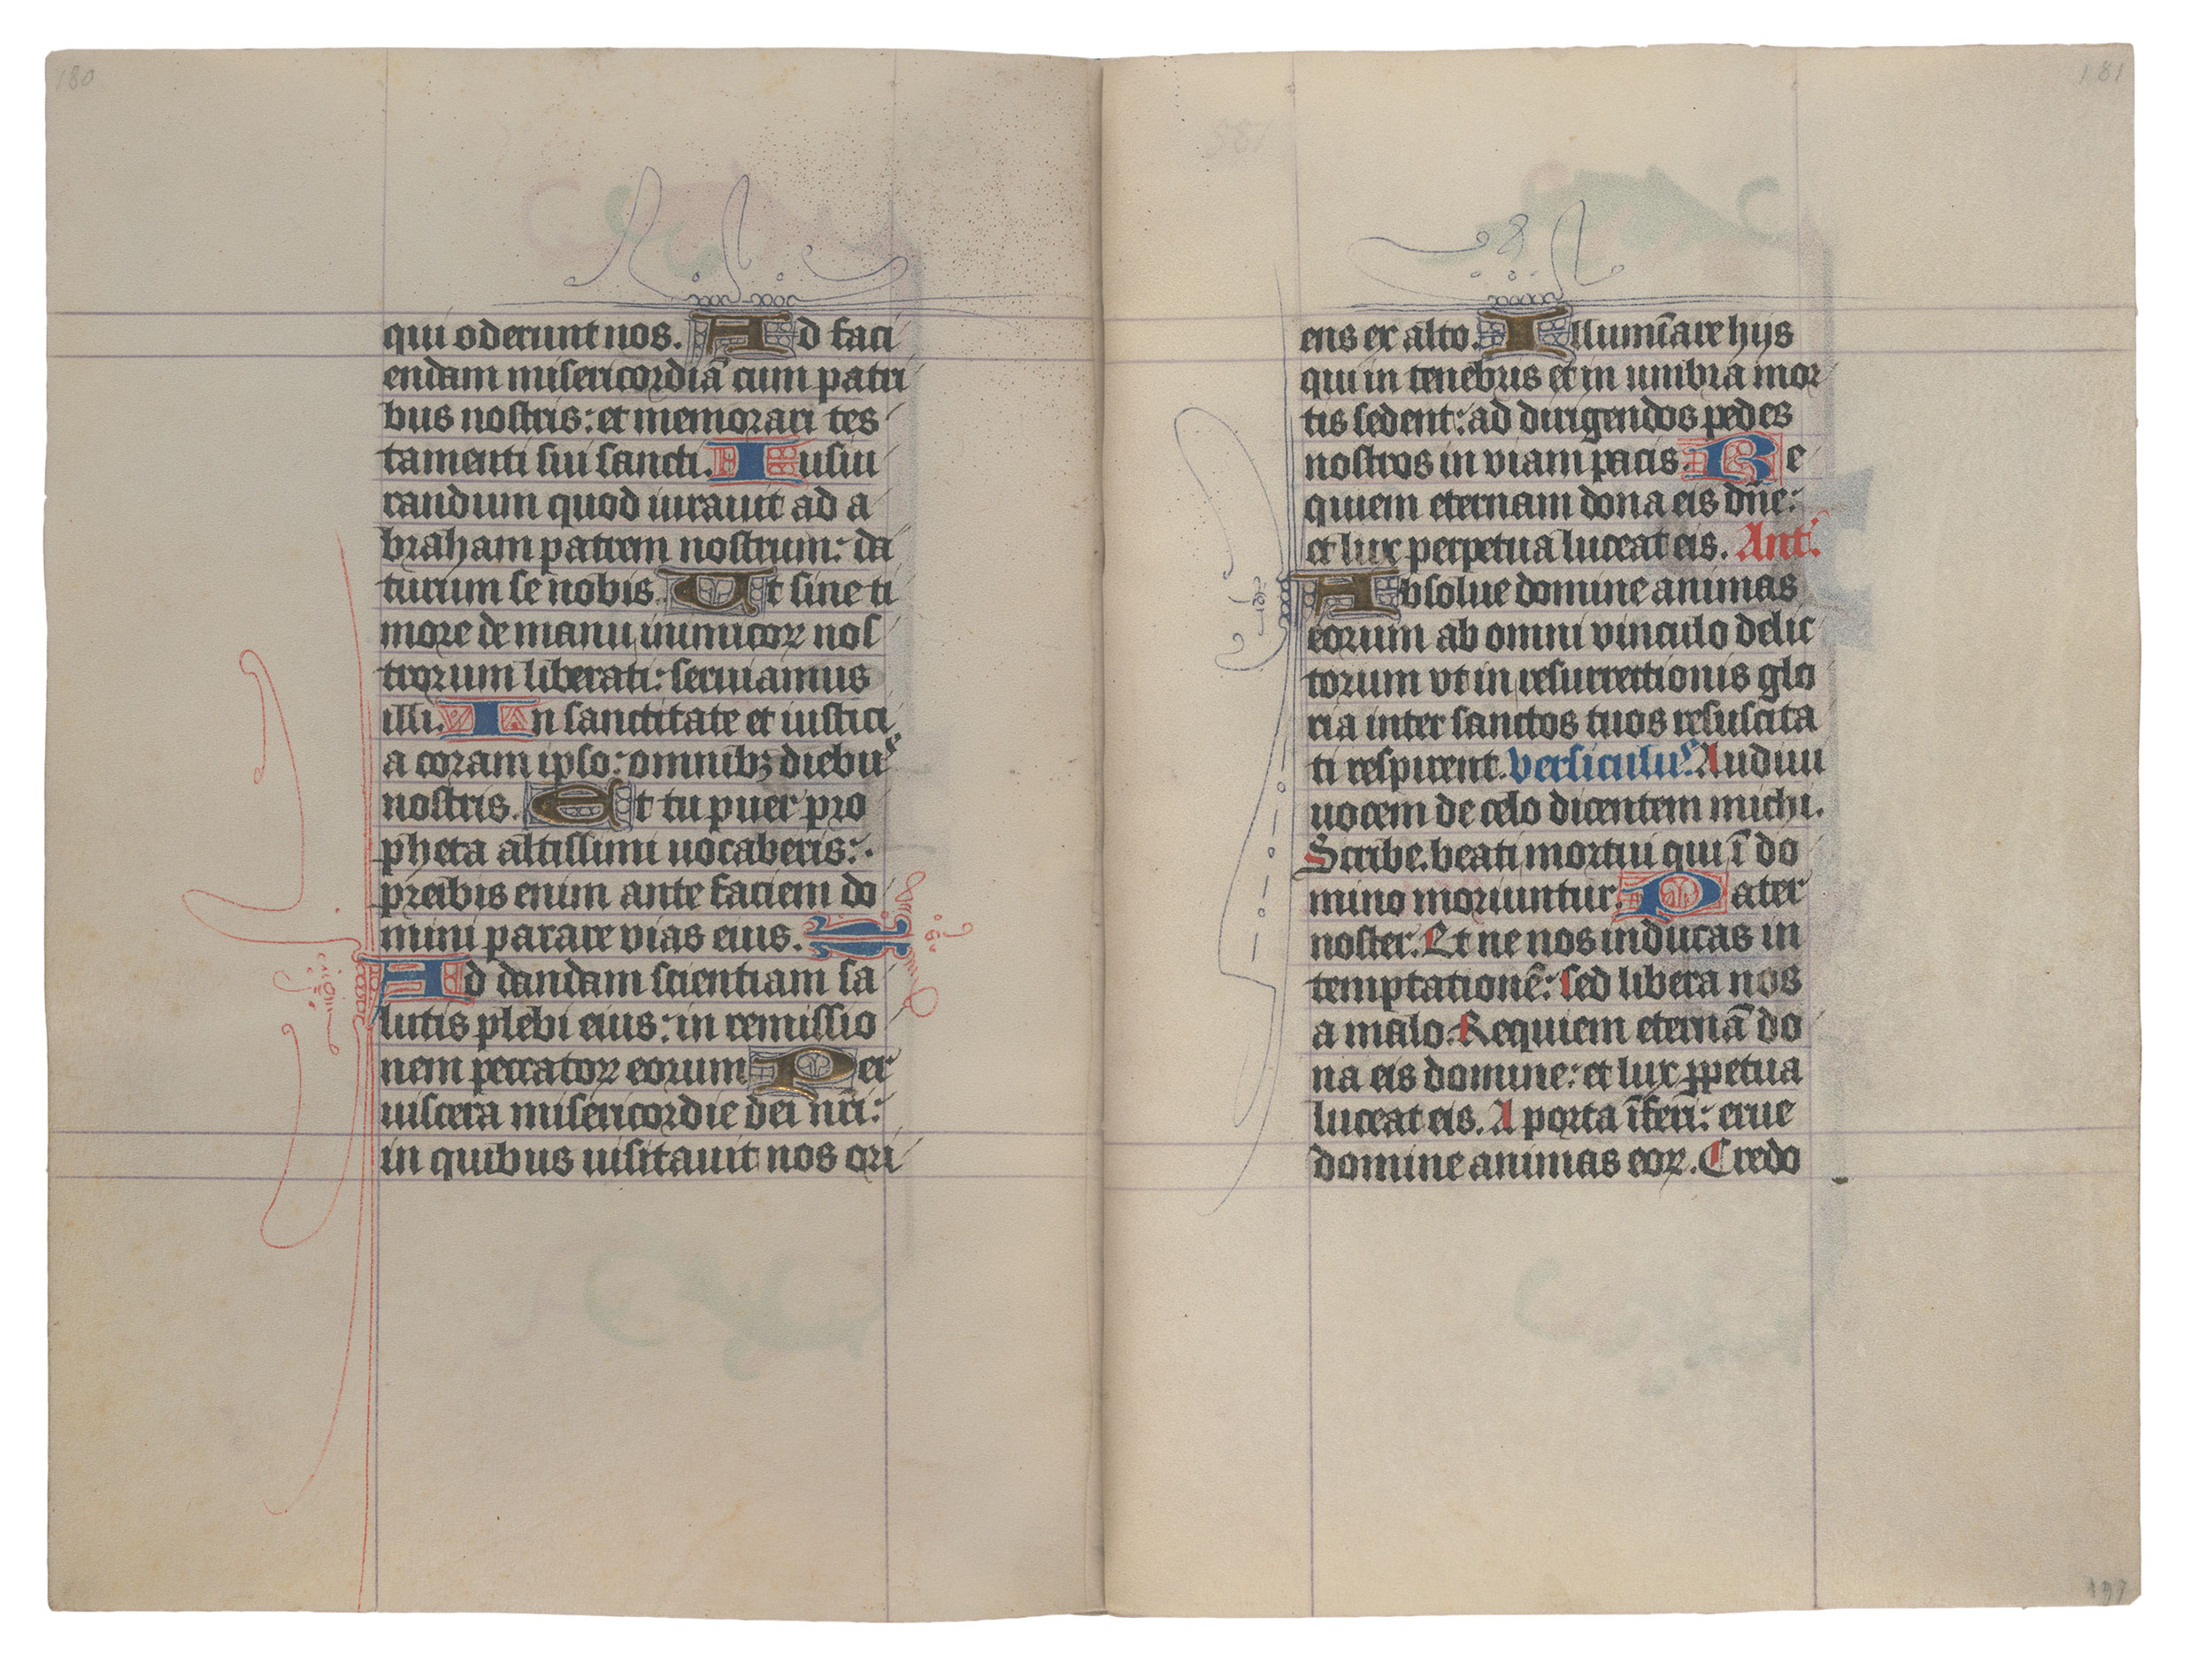 180
qui oderunt nos. Ad faci
endam misericordiā cum patri
bus nostris: et memorari tes
tamenti sui sancti. Iusiu
randum quod iurauit ad a
braham patrem nostrum: da
turum se nobis. Ut sine ti
more de manu inimicoꝝ nos
trorum liberati: seruiamus
illi. In sanctitate et iustici
a coram ipso: omnibꝫ diebus
nostris. Et tu puer pro
pheta altissimi uocaberis:
preibis enim ante faciem do
mini parare vias eius.
Ad dandam scientiam sa
lutis plebi eius: in remissio
nem peccatoꝝ eorum Per
uiscera misericordie dei nr̄i:
in quibus uisitauit nos ori
181
ens ex alto. Illumīare hijs
qui in tenebris et in umbra mor
tis sedent: ad dirigendos pedes
nostros in viam pacis. Re
quiem eternam dona eis dn̄e:
et lux perpetua luceat eis. Ant.
Absolue domine animas
eorum ab omni vinculo delic
torum vt in resurrectionis glo
ria inter sanctos tuos resuscita
ti respirent. versiculus. Audiui
uocem de celo dicentem michi.
Scribe. beati mortui qui ī do
mino moriuntur. Pater
noster. Et ne nos inducas in
temptationē: sed libera nos
a malo. Requiem eternā do
na eis domine: et lux ꝑpetua
luceat eis. A porta īferi: erue
domine animas eoꝝ. Credo